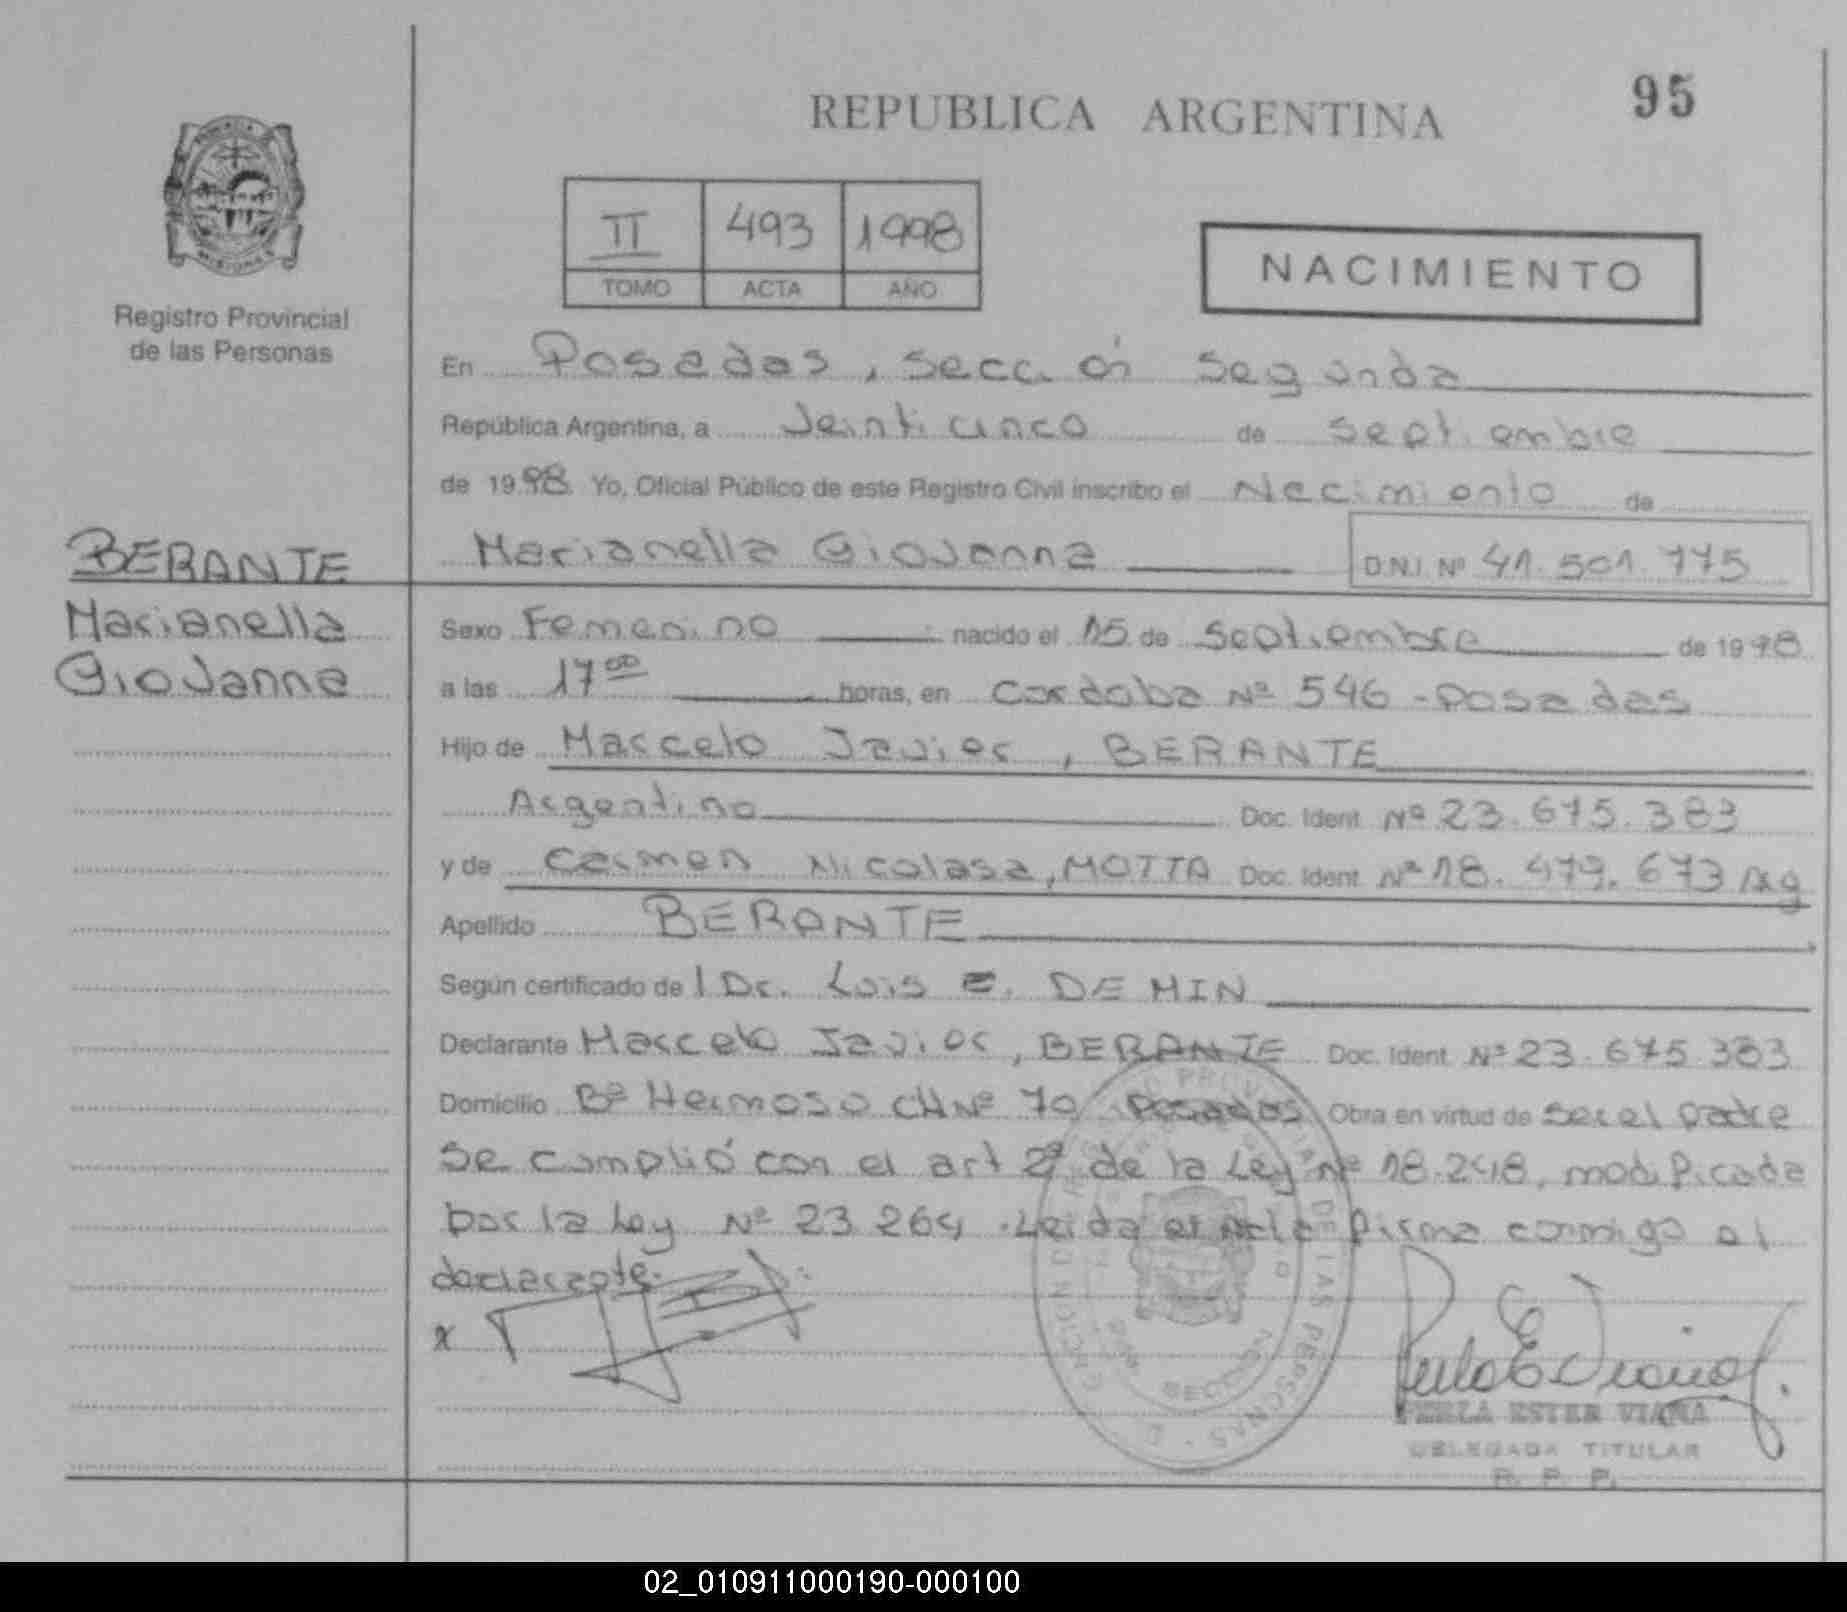 95
REPUBLICA ARGENTINA
II 493 1998
TOMO ACTA AÑO
NACIMIENTO
MISIONES
Registro Provincial
de las Personas
En Posadas, sección Segunda
República Argentina, a Veinticinco de Septiembre
de 1998 Yo, Oficial Público de este Registro Civil inscribo el Nacimiento de
BERANTE
Marianella
Giovanna
Marianella Giovanna D.N.I. Nº 41.501.775
Sexo Femenino nacido el 15 de Septiembre de 1998
a las 17 00 horas, en Cordoba Nº 546 - Posadas
Hijo de Marcelo Javier, BERANTE
Argentino Doc. Ident. Nº 23.675.383
y de Carmen Nicolasa, MOTTA Doc. Ident. Nº 18.479.673 Arg
Apellido BERANTE
Según certificado del Dr. Luis E. DE MIN
Declarante Marcelo Javier, BERANTE Doc. Ident. Nº 23.675.383
Domicilio Bº Hermoso CH Nº 70 Posadas Obra en virtud de ser el padre
Se cumplió con el art 2º de la Ley Nº 18.248, modificada
por la Ley Nº 23264. Leida el Acta firma conmigo el
declarante.
x
REGISTRO PROVINCIAL DE LAS PERSONAS
SECCION
PERLA ESTER VIANA
DELEGADA TITULAR
R. P. P.
02_010911000190-000100